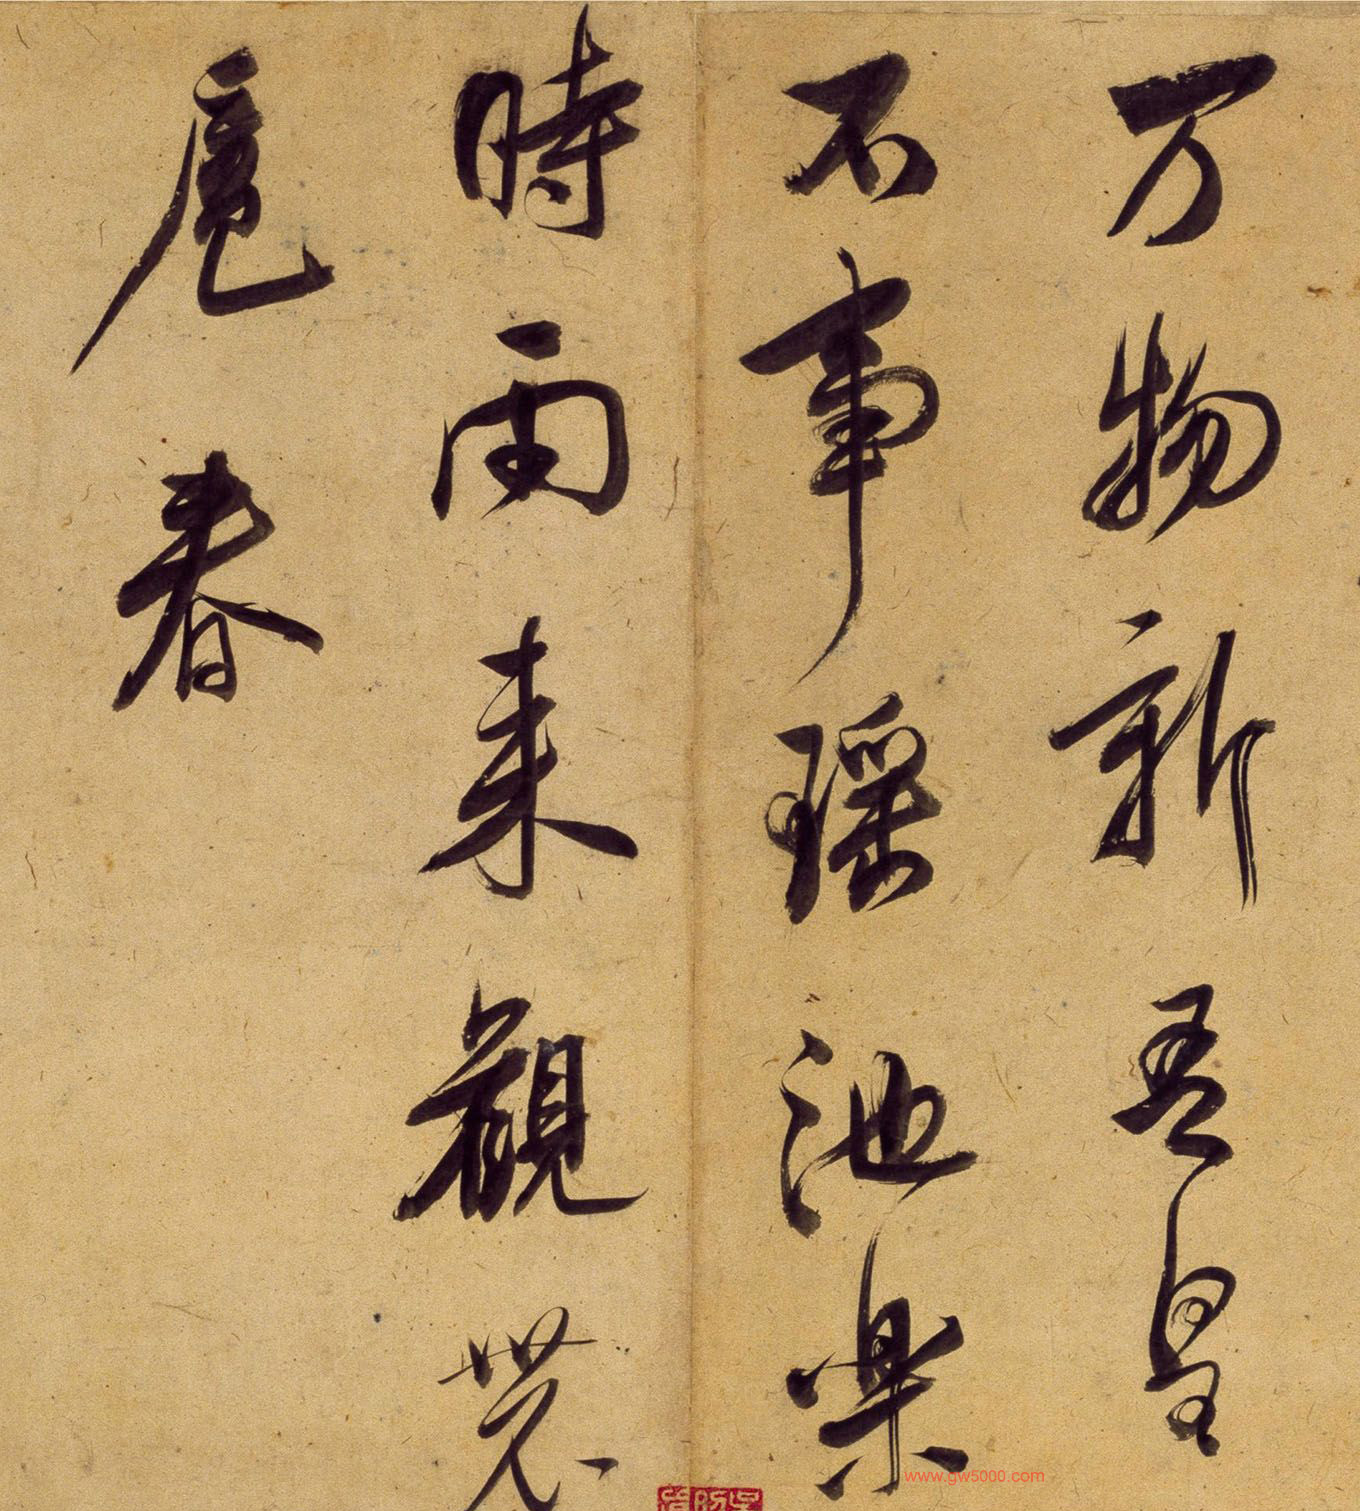 万物新吾皇
不事瑶池楽
時雨来觀農
扈春
www.gw5000.com